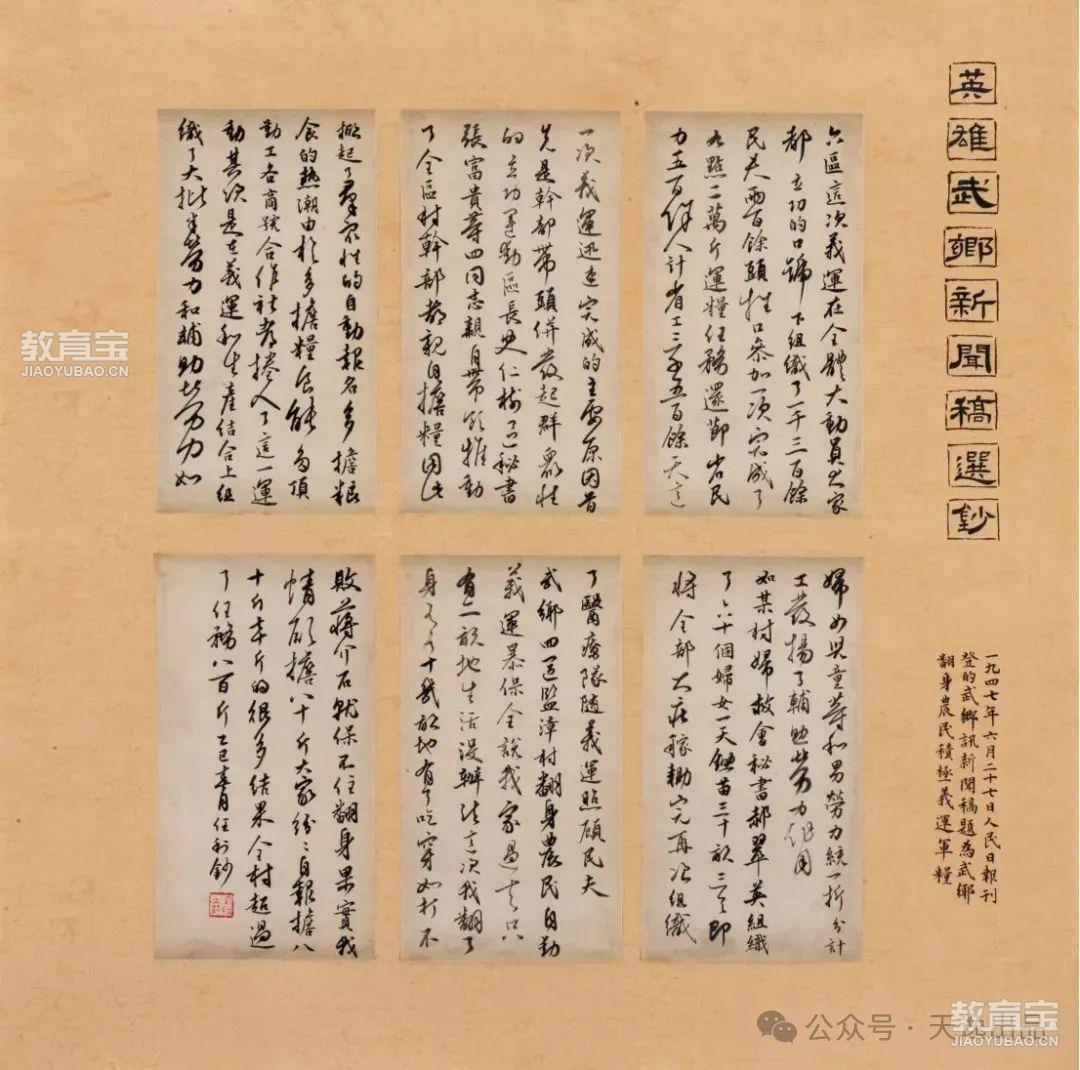 英雄武鄉新聞稿選鈔
一九四七年六月二十七日人民日報刊
登的武鄉訊新聞稿題為武鄉
翻身農民積極義運軍糧
六區這次義運在全體大動員大家
都立功的口號下組織了一千三百餘
民夫兩百餘頭牲口參加一項完成了
九點二萬斤運糧任務還節省民
力五百餘人計省工三千五百餘天這
一次義運迅速完成的主要原因首
先是幹部帶頭併發起群眾性
的立功運動區長史仁樹區秘書
張富貴等四同志親自帶領推動
了全區村幹部都親自擔糧因此
掀起了群眾性的自動報名多擔糧
食的熱潮由於多擔糧食能多頂
勤工各商號合作社都捲入了這一運
動其次是在義運和生產結合上組
織了大批半勞力和輔助勞力如
婦女兒童等和男勞力統一折分計
工發揚了輔助勞力作用
如某村婦救會秘書郝翠英組織
了六十個婦女一天鋤苗三十畝三天即
將全部大莊稼鋤完再次組織
了醫療隊隨義運照顧民夫
武鄉四區監漳村翻身農民自動
義運暴保全說我家過去只
有二畝地生活沒辦法這次我翻了
身有了十幾畝地有了吃穿如打不
敗蔣介石就保不住翻身果實我
情願擔八十斤大家紛紛自報擔八
十斤七十斤的很多結果全村超過
了任務八百斤乙巳
鈔
教育宝
JIAOYUBAO.CN
公众号·天
教育宝
JIAOYUBAO.CN